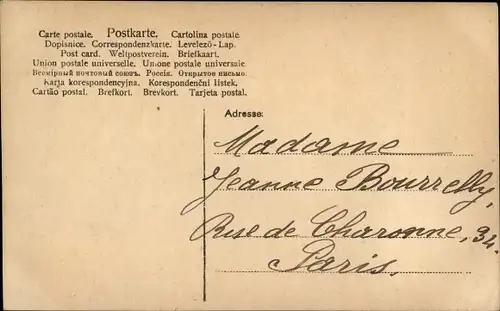 Carte postale. Postkarte. Cartolina postale
Dopisnice. Correspondenzkarte. Levelező-Lap.
Post card. Weltpostverein. Briefkaart.
Union postale universelle. Unione postale universale
Всемірный почтовый союзъ. Россія. Открытое письмо.
Karja korespondencyjna. Korespondenční lístek.
Cartão postal. Brefkort. Brevkort. Tarjeta postal.
Adresse:
Madame
Jeanne Bourrelly,
Rue de Charonne, 94.
Paris.